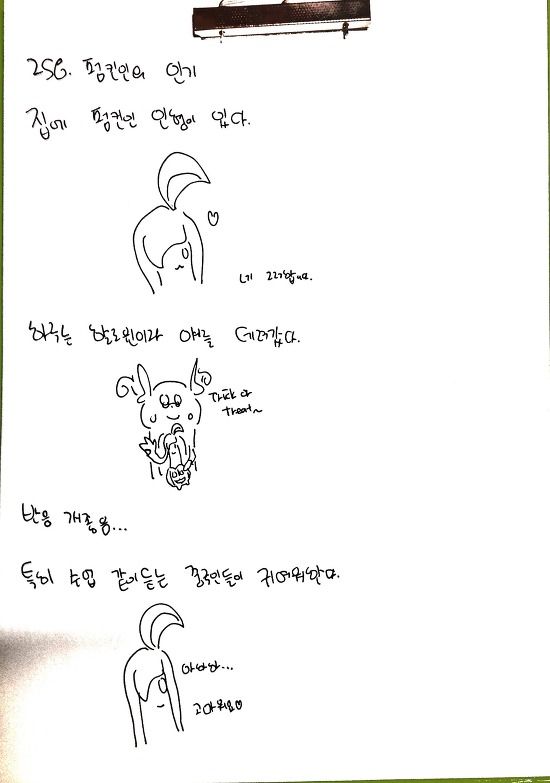 256. 펌킨인의 인기
집에 펌킨인 인형이 있다.
네 그거맞습니다.
하루는 할로윈이라 얘를 데려갔다.
Trick or
treat~
반응 개좋음...
특히 수업 같이듣는 중국인들이 귀여워한다.
아하하...
고마워요♡